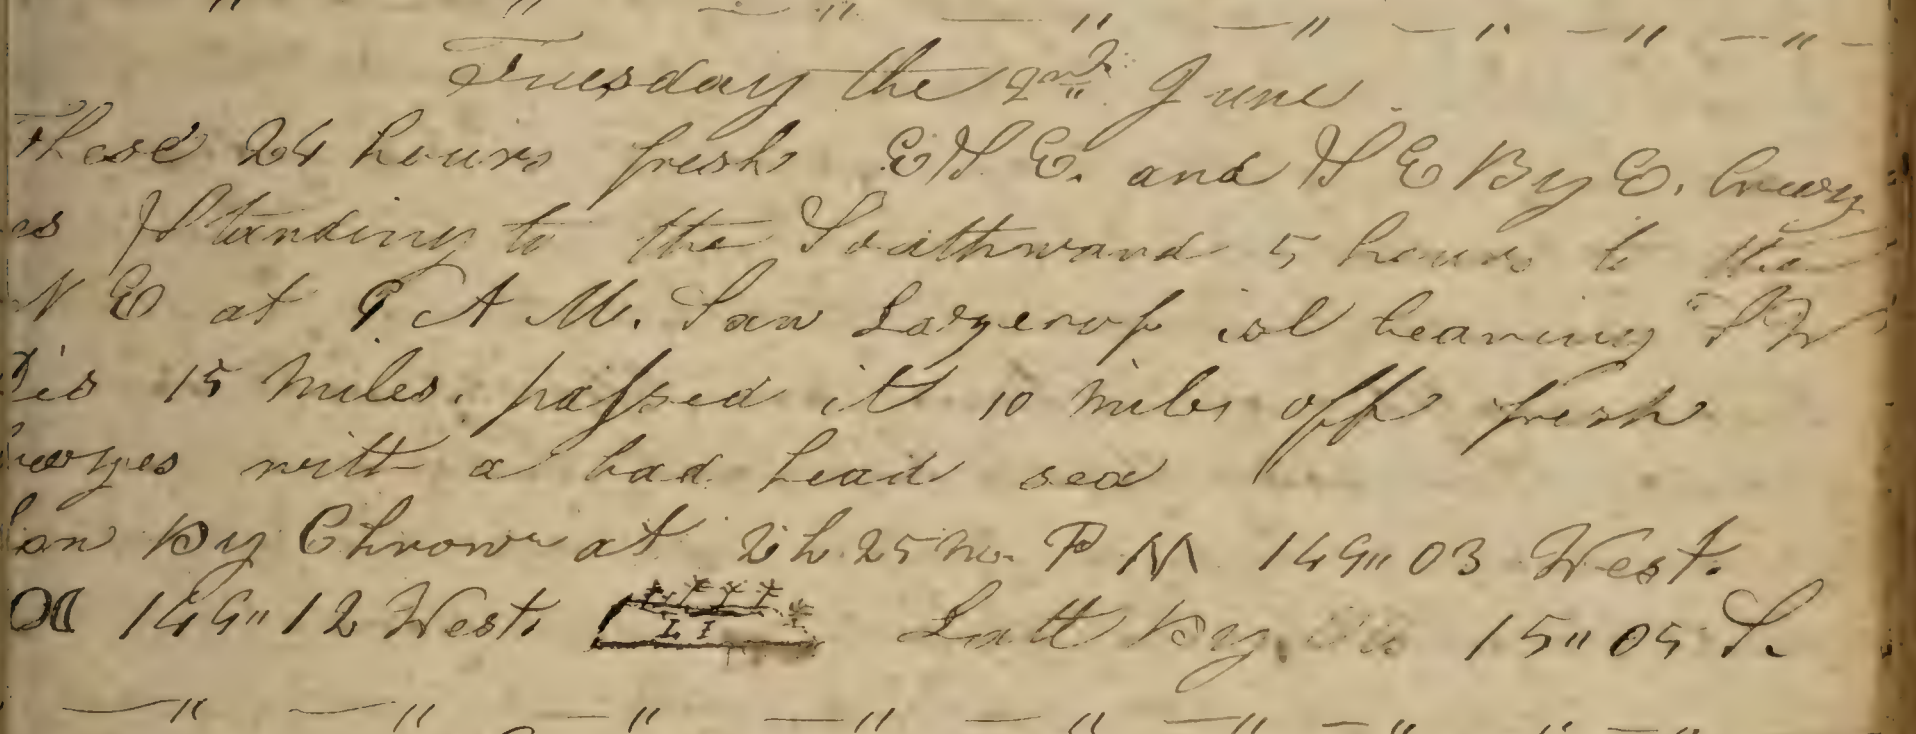 Tuesday the 2nd June.
These 24 hours fresh E S E. and S E By E.
es Standing to the Southward 5 hours to the
N E at 9 A M. San isl bearing S W
Dis 15 Miles. passed it 10 Miles off fresh
with a bad head sea
Lon By Chronr at 2h 25m. P M 149" 03 West.
149" 12 West. L I Latt By 15" 05 S.